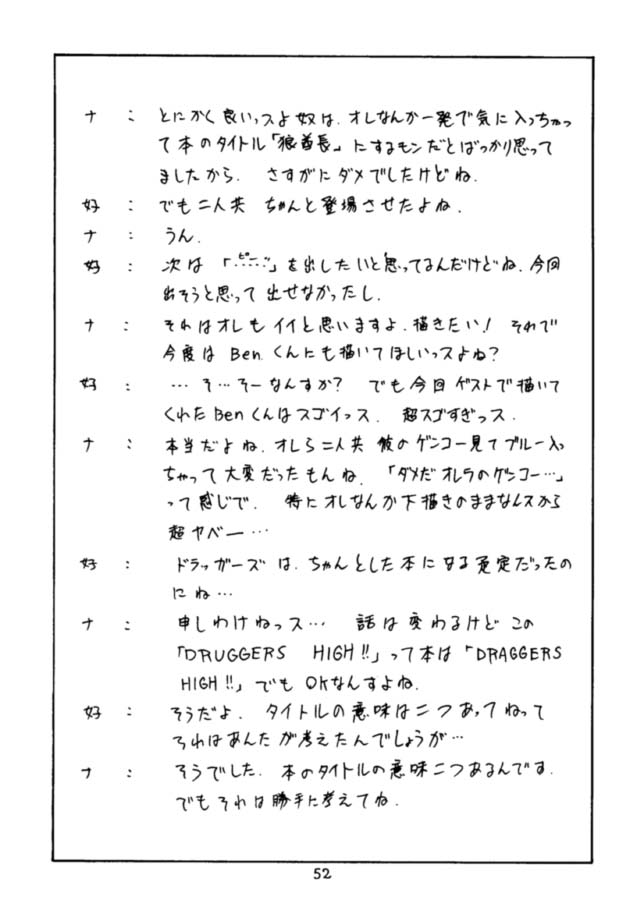 ナ： とにかく良いっスよ奴は、オレなんか一発で気に入っちゃっ
て本のタイトル「狼酋長」にするモンだとばっかり思って
ましたから、 さすがにダメでしたけどね.
好： でも二人共 ちゃんと登場させたよね.
ナ： うん.
好： 次は「ピー」を出したいと思ってるんだけどね、今回
出そうと思って出せなかったし.
ナ： それはオレもイイと思いますよ、描きたい! それで
今度は Ben.くんにも描いてほしいっスよね?
好： …そ…そーなんすか? でも今回ゲストで描いて
くれたBenくんはスゴイっス. 超スゴすぎっス.
ナ： 本当だよね、オレら二人共 彼のゲンコー見てブルー入っ
ちゃって大変だったもんね. 「ダメだオレラのゲンコー…」
って感じで、 特にオレなんか下描きのままなんスから
超ヤベー…
好： ドラッガーズは、ちゃんとした本になる予定だったの
にね…
ナ： 申しわけねっス… 話は変わるけどこの
「DRUGGERS HIGH!!」って本は「DRAGGERS
HIGH!!」でもOKなんすよね.
好： そうだよ. タイトルの意味は二つあってねって
それはあんたが考えたんでしょうが…
ナ： そうでした. 本のタイトルの意味二つあるんです.
でもそれは勝手に考えてね.
52